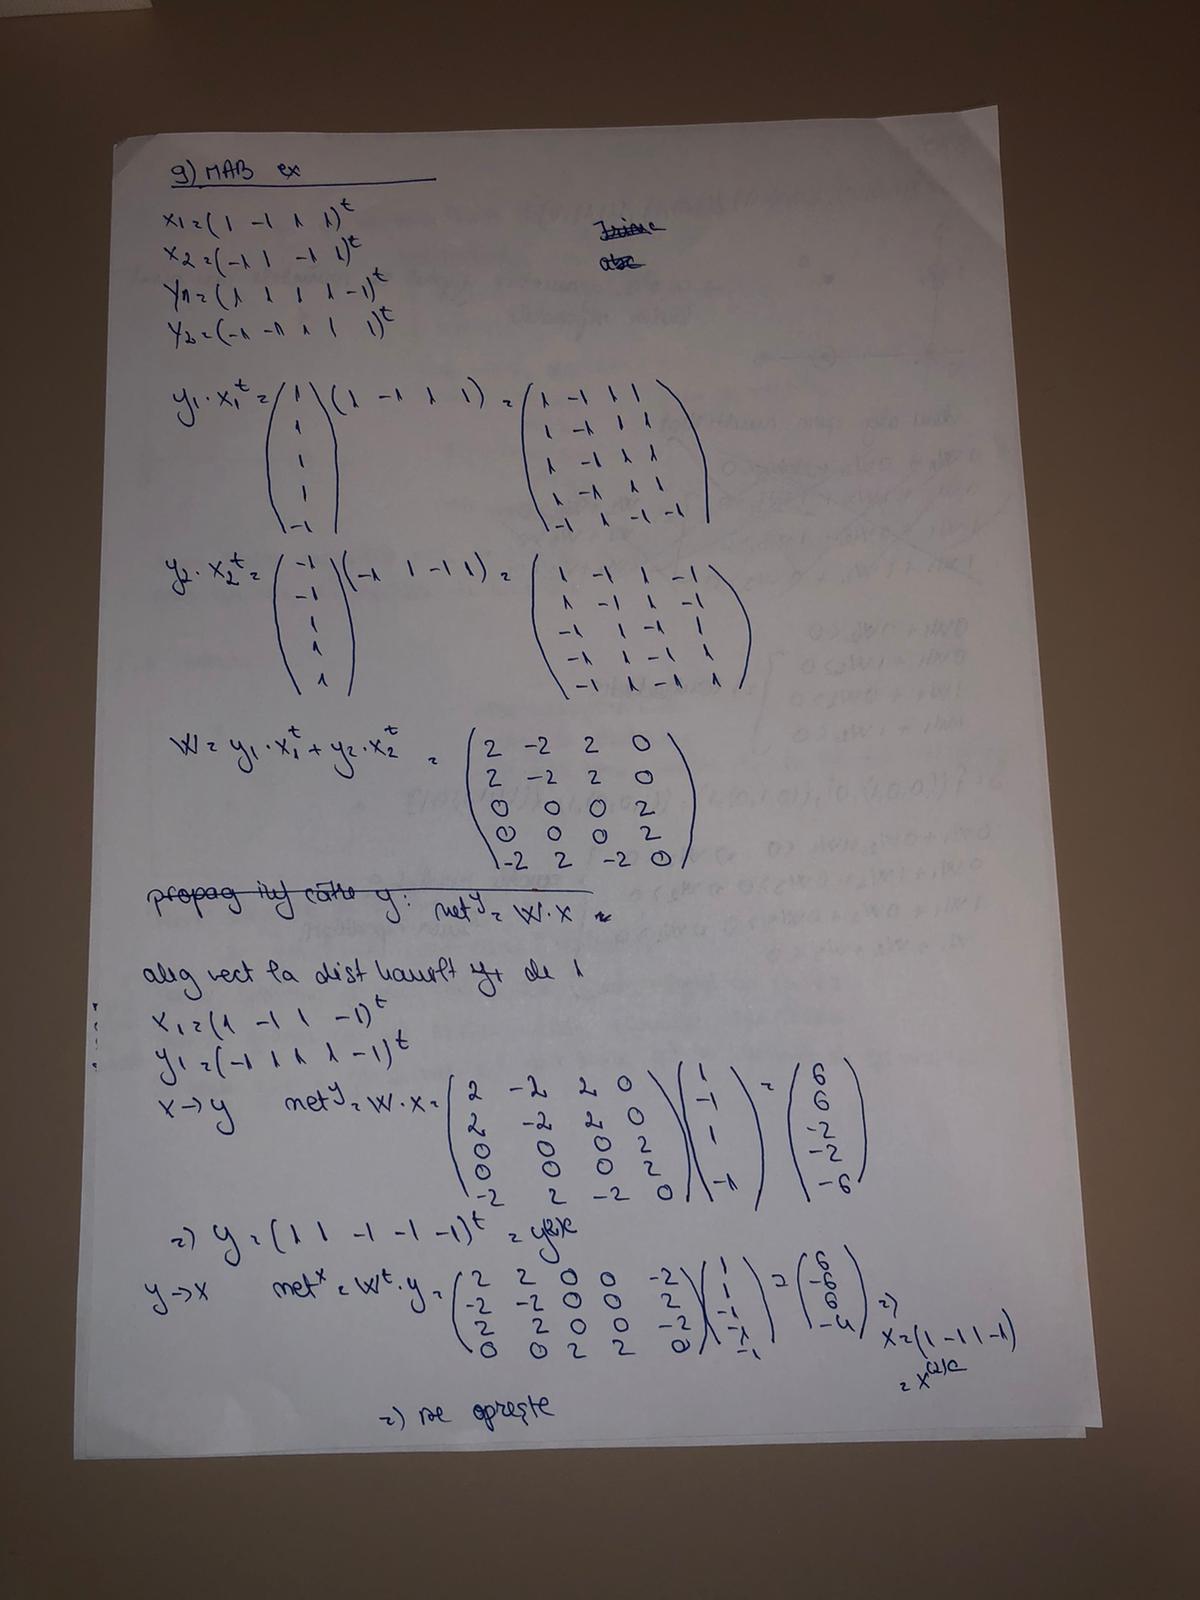 9) MAB ex
x1=(1 -1 1 1)^t
x2=(-1 1 -1 1)^t
y1=(1 1 1 1 -1)^t
y2=(-1 -1 1 1 1)^t
y1·x1^t = (1 1 1 1 -1) (1 -1 1 1) = (1 -1 1 1
1 -1 1 1
1 -1 1 1
1 -1 1 1
-1 1 -1 -1)
y2·x2^t = (-1 -1 1 1 1) (-1 1 -1 1) = (1 -1 1 -1
1 -1 1 -1
-1 1 -1 1
-1 1 -1 1
-1 1 -1 1)
W = y1·x1^t + y2·x2^t = (2 -2 2 0
2 -2 2 0
0 0 0 2
0 0 0 2
-2 2 -2 0)
propag inf către y: net^y = W·x =
aleg vect la dist de 1
x1=(1 -1 1 -1)^t
y1=(-1 1 1 1 -1)^t
x→y net^y = W·x = (2 -2 2 0
2 -2 2 0
0 0 0 2
0 0 0 2
-2 2 -2 0) (1 -1 1 -1) = (6 6 -2 -2 -6)
=) y = (1 1 -1 -1 -1)^t =
y→x net^x = W^t·y = (2 2 0 0 -2
-2 -2 0 0 2
2 2 0 0 -2
0 0 2 2 0) (1 1 -1 -1 -1) = (6 -6 6 -4) =)
x=(1 -1 1 -1)
=) se oprește